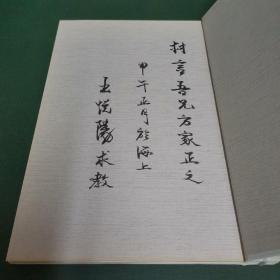 村言吾兄方家正之
甲午正月於海上
王悦阳求教